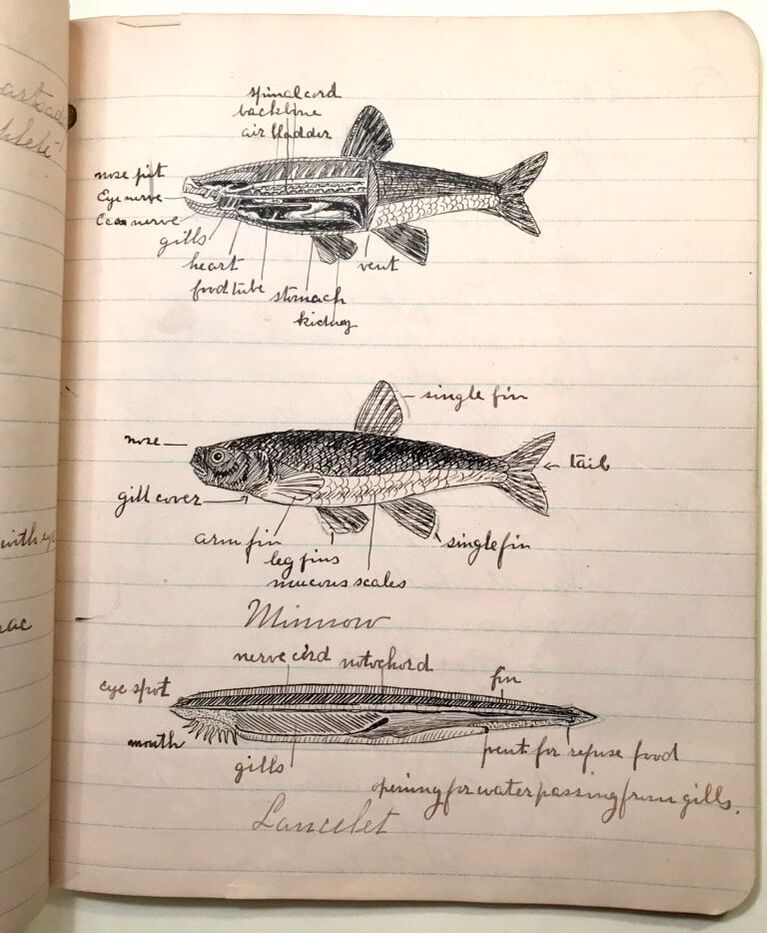 spinal cord
backbone
air bladder
nose pit
Eye nerve
nerve
gills
heart
food tube
stomach
kidney
vent
single fin
nose
tail
gill cover
arm fin
leg fins
single fin
mucous scales
Minnow
nerve cord
notochord
fin
eye spot
mouth
gills
vent for refuse food
opening for water passing from gills.
Lancelet
with